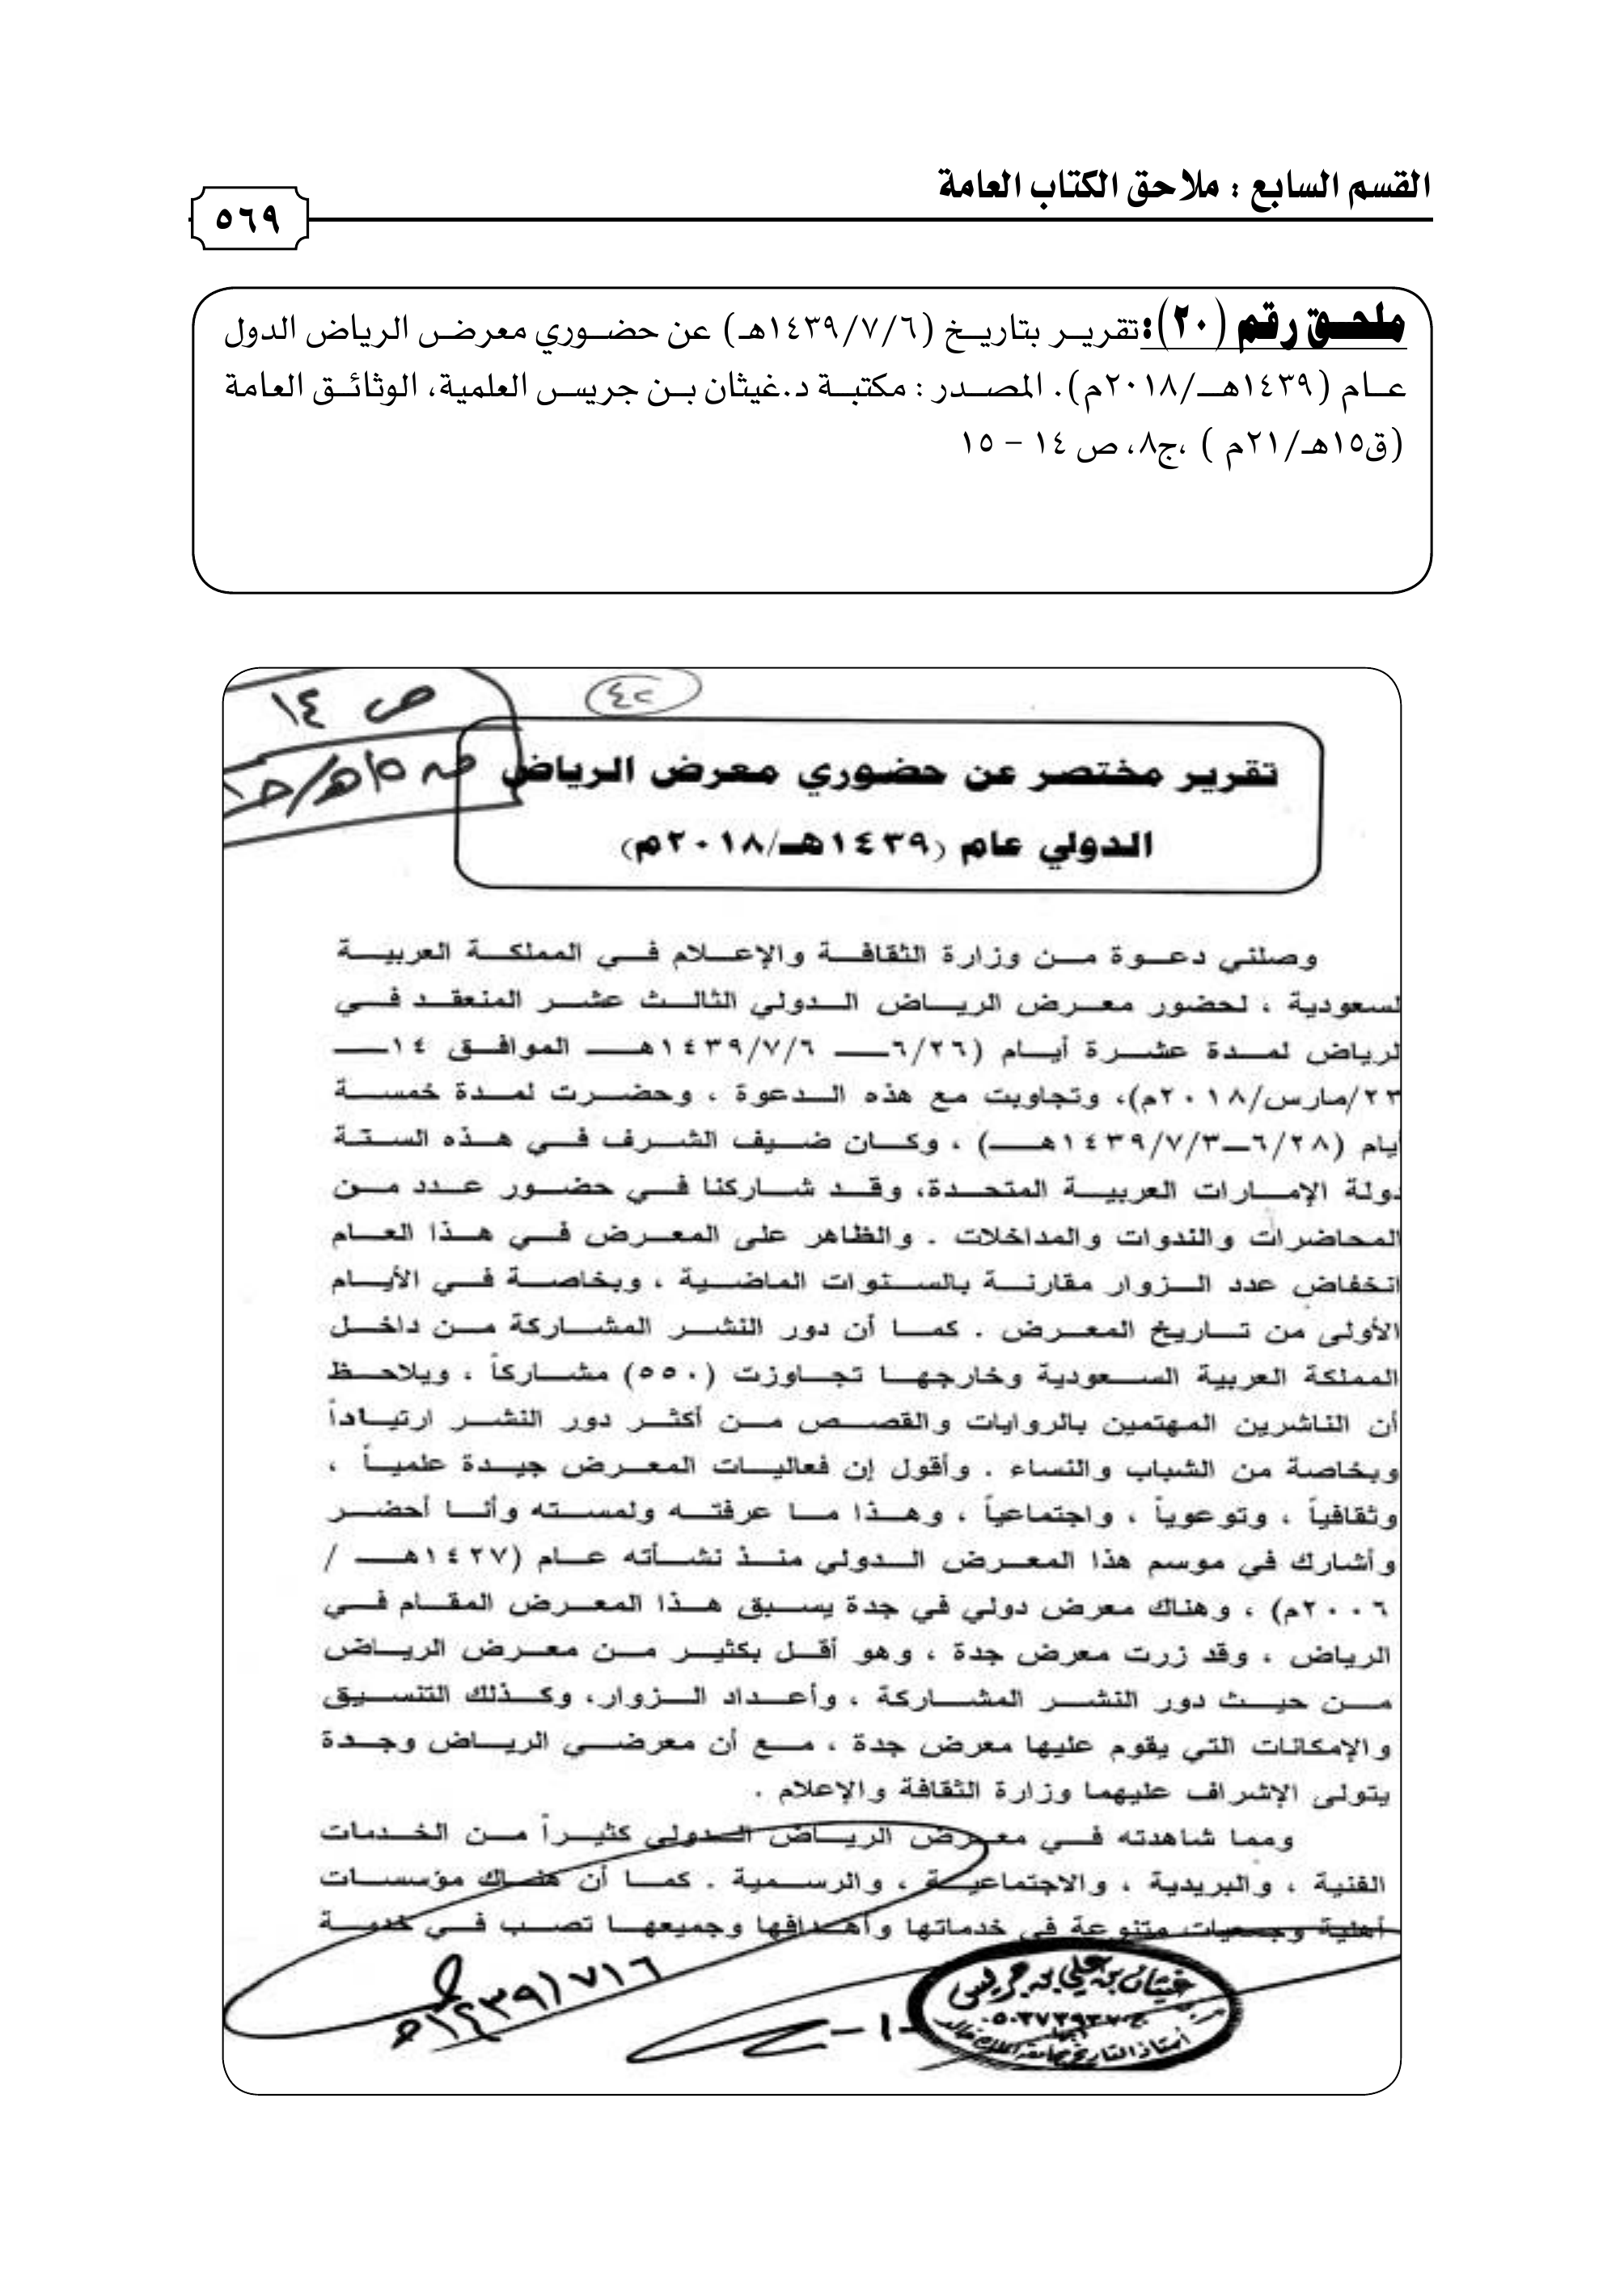 القسم السابع : ملاحق الكتاب العامة
٥٦٩
ملحق رقم (٢٠): تقرير بتاريخ (١٤٣٩/٧/٦هـ) عن حضوري معرض الرياض الدول
عام (١٤٣٩هـ/٢٠١٨م). المصدر : مكتبة د.غيثان بن جريس العلمية، الوثائق العامة
(ق١٥هـ/٢١م ) ،ج٨، ص ١٤ – ١٥
ص ١٤
٤٢
تقرير مختصر عن حضوري معرض الرياض
الدولي عام (١٤٣٩هـ/٢٠١٨م)
وصلتني دعوة من وزارة الثقافة والإعلام في المملكة العربية
لسعودية ، لحضور معرض الرياض الدولي الثالث عشر المنعقد في
لرياض لمدة عشرة أيام (٦/٢٦ــ ١٤٣٩/٧/٦هـ الموافق ١٤ــ
٢٣/مارس/٢٠١٨م)، وتجاوبت مع هذه الدعوة ، وحضرت لمدة خمسة
أيام (٦/٢٨ــ١٤٣٩/٧/٣هـ) ، وكان ضيف الشرف في هذه السنة
دولة الإمارات العربية المتحدة، وقد شاركنا في حضور عدد من
المحاضرات والندوات والمداخلات . والظاهر على المعرض في هذا العام
انخفاض عدد الزوار مقارنة بالسنوات الماضية ، وبخاصة في الأيام
الأولى من تاريخ المعرض . كما أن دور النشر المشاركة من داخل
المملكة العربية السعودية وخارجها تجاوزت (٥٥٠) مشاركاً ، ويلاحظ
أن الناشرين المهتمين بالروايات والقصص من أكثر دور النشر ارتياداً
وبخاصة من الشباب والنساء . وأقول إن فعاليات المعرض جيدة علمياً ،
وثقافياً ، وتوعوياً ، واجتماعياً ، وهذا ما عرفته ولمسته وأنا أحضر
وأشارك في موسم هذا المعرض الدولي منذ نشأته عام (١٤٢٧هـ /
٢٠٠٦م) ، وهناك معرض دولي في جدة يسبق هذا المعرض المقام في
الرياض ، وقد زرت معرض جدة ، وهو أقل بكثير من معرض الرياض
من حيث دور النشر المشاركة ، وأعداد الزوار، وكذلك التنسيق
والإمكانات التي يقوم عليها معرض جدة ، مع أن معرضي الرياض وجدة
يتولى الإشراف عليهما وزارة الثقافة والإعلام .
ومما شاهدته في معرض الرياض الدولي كثيراً من الخدمات
الفنية ، والبريدية ، والاجتماعية ، والرسمية . كما أن هناك مؤسسات
أهلية وجمعيات متنوعة في خدماتها وأهدافها وجميعها تصب في خدمة
١٤٣٩/٧/٦هـ
-١-
غيثان بن علي بن جريس
أستاذ التاريخ بجامعة الملك خالد